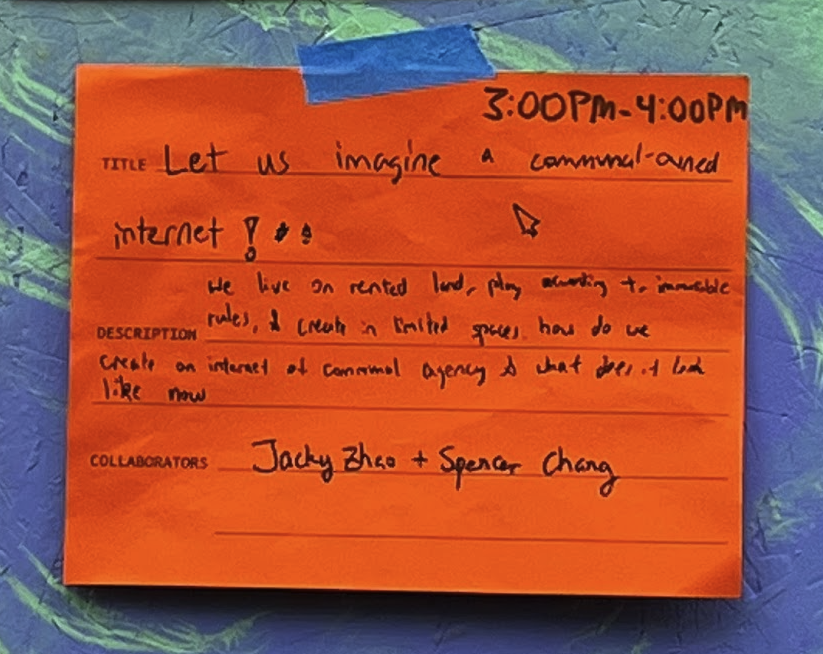 3:00PM-4:00PM
TITLE Let us imagine a communal-owned
internet !
we live on rented land, play according to immutable
DESCRIPTION rules, & create in limited spaces. how do we
create an internet of communal agency & what does it look
like now
COLLABORATORS Jacky Zhao + Spencer Chang